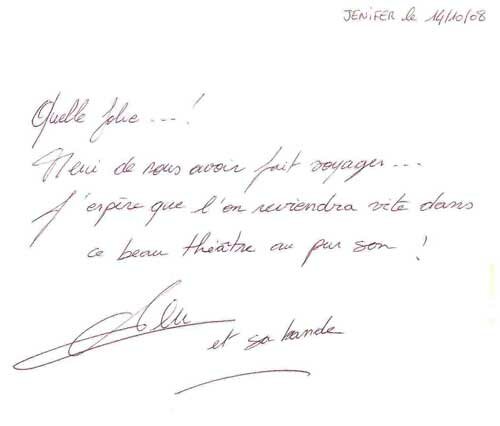 JENIFER le 14/10/08
Quelle folie ---!
Merci de nous avoir fait voyager...
J'espère que l'on reviendra vite dans
ce beau théâtre au pur son !
et sa bande